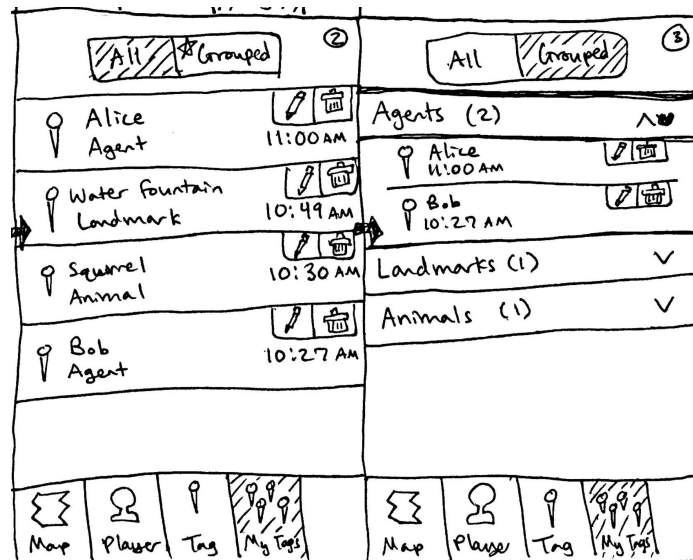 2
All
Grouped
Alice
Agent
11:00 AM
Water fountain
Landmark
10:49 AM
Squirrel
Animal
10:30 AM
Bob
Agent
10:27 AM
Map
Player
Tag
My Tags
3
All
Grouped
Agents (2)
Alice
11:00 AM
Bob
10:27 AM
Landmarks (1)
Animals (1)
Map
Player
Tag
My Tags